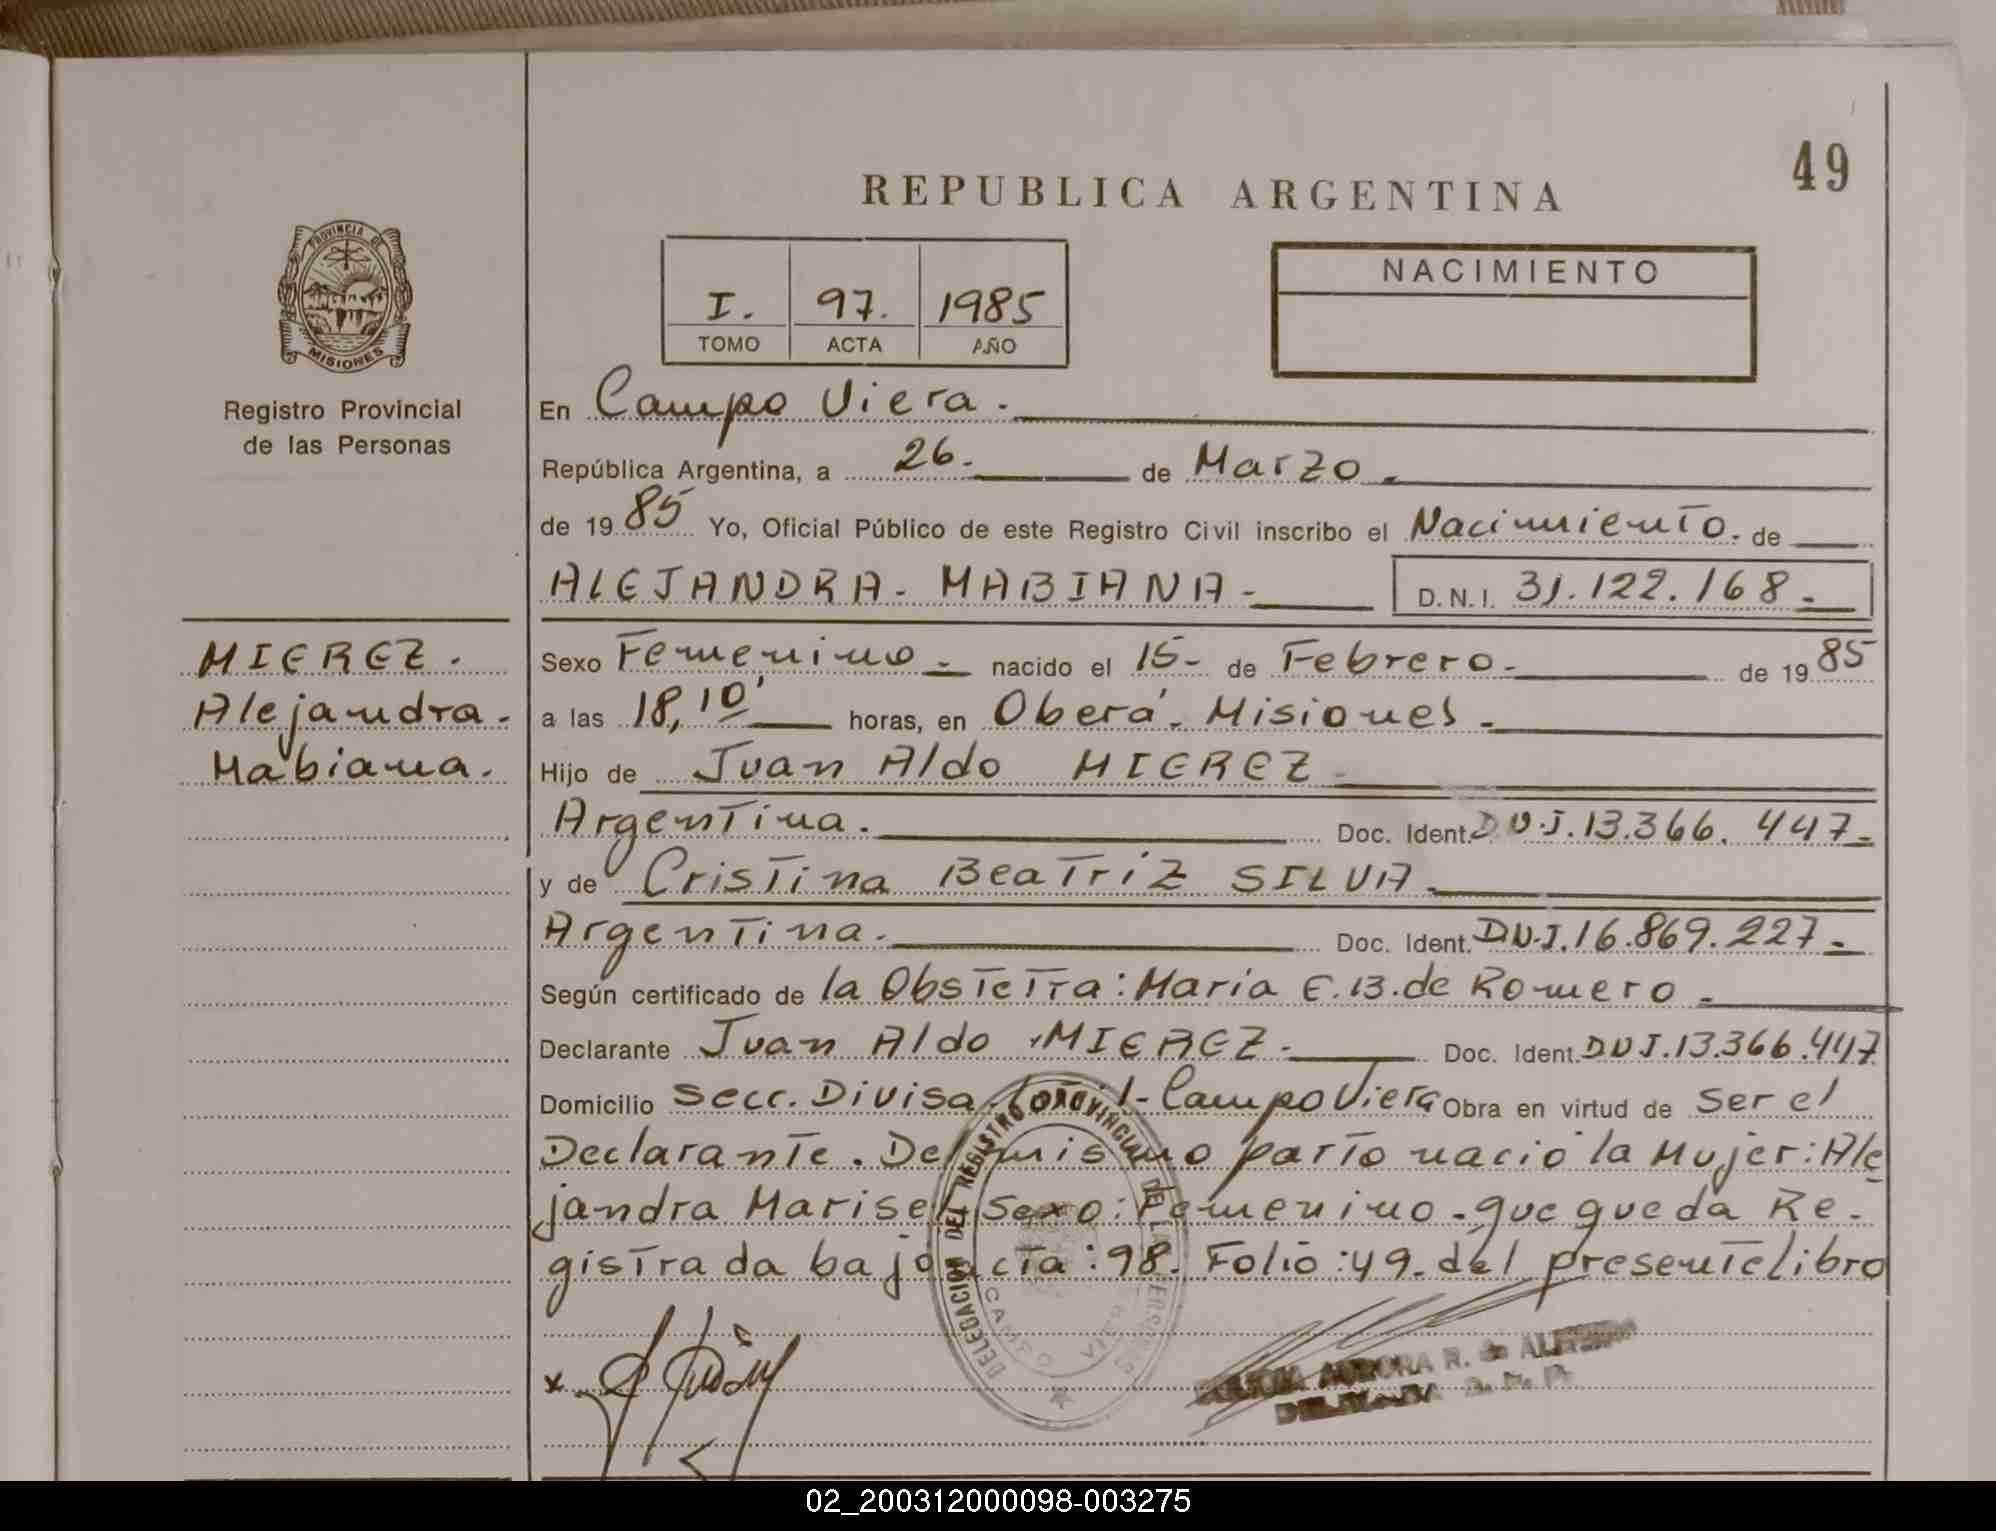 49
REPUBLICA ARGENTINA
PROVINCIA DE
MISIONES
Registro Provincial
de las Personas
I. 97. 1985
TOMO ACTA AÑO
NACIMIENTO
En Campo Viera.
República Argentina, a 26. de Marzo.
de 1985 Yo, Oficial Público de este Registro Civil inscribo el Nacimiento. de
ALEJANDRA. MABIANA. D.N.I. 31.122.168.
MIEREZ.
Alejandra.
Mabiana.
Sexo Femenino. nacido el 15- de Febrero. de 1985
a las 18,10' horas, en Oberá. Misiones.
Hijo de Juan Aldo MIEREZ.
Argentina. Doc. Ident. D.N.I. 13.366.447.
y de Cristina Beatriz SILVA.
Argentina. Doc. Ident. D.N.I. 16.869.227.
Según certificado de la Obstetra: Maria E. B. de Romero.
Declarante Juan Aldo MIEREZ. Doc. Ident. DNI. 13.366.447
Domicilio Secc. Divisa Campo Viera Obra en virtud de Ser el
Declarante. Del mismo parto nació la Mujer: Ale
jandra Marisel Sexo: Femenino. que queda Re-
gistrada bajo acta: 98. Folio: 49. del presente libro
DELEGACION DEL REGISTRO PROVINCIAL DE LAS PERSONAS
CAMPO VIERA
x
AURORA R. de
02_200312000098-003275